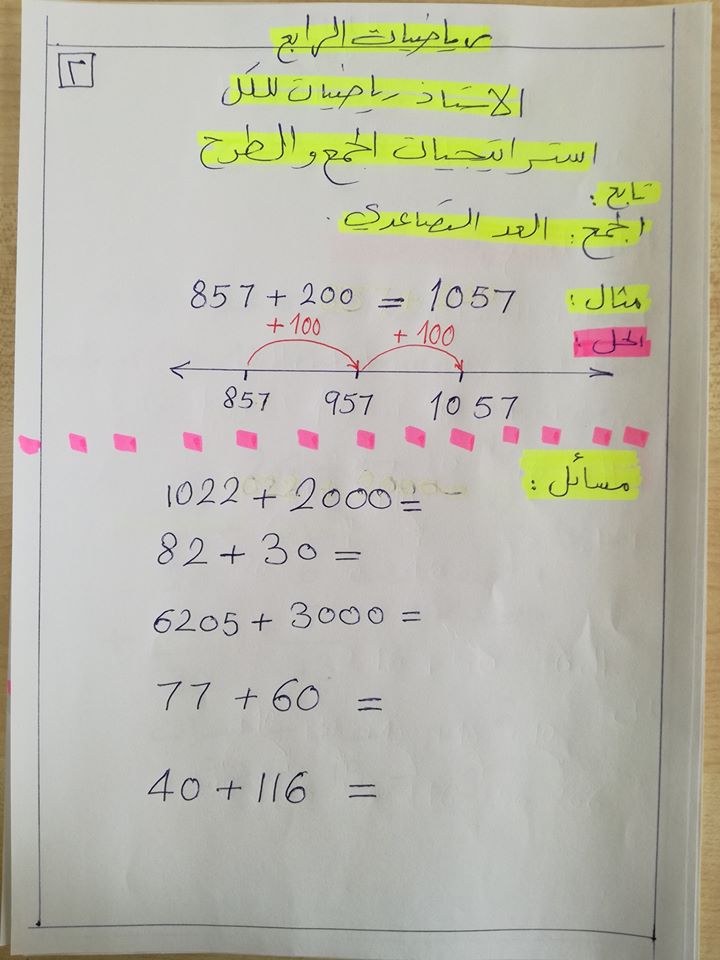 رياضيات الرابع
٢
الاستاذ رياضيات للكل
استراتيجيات الجمع والطرح
تابع:
الجمع: العد التصاعدي.
مثال: 857 + 200 = 1057
الحل:
+100 +100
857 957 1057
مسائل:
1022 + 2000 =
82 + 30 =
6205 + 3000 =
77 + 60 =
40 + 116 =